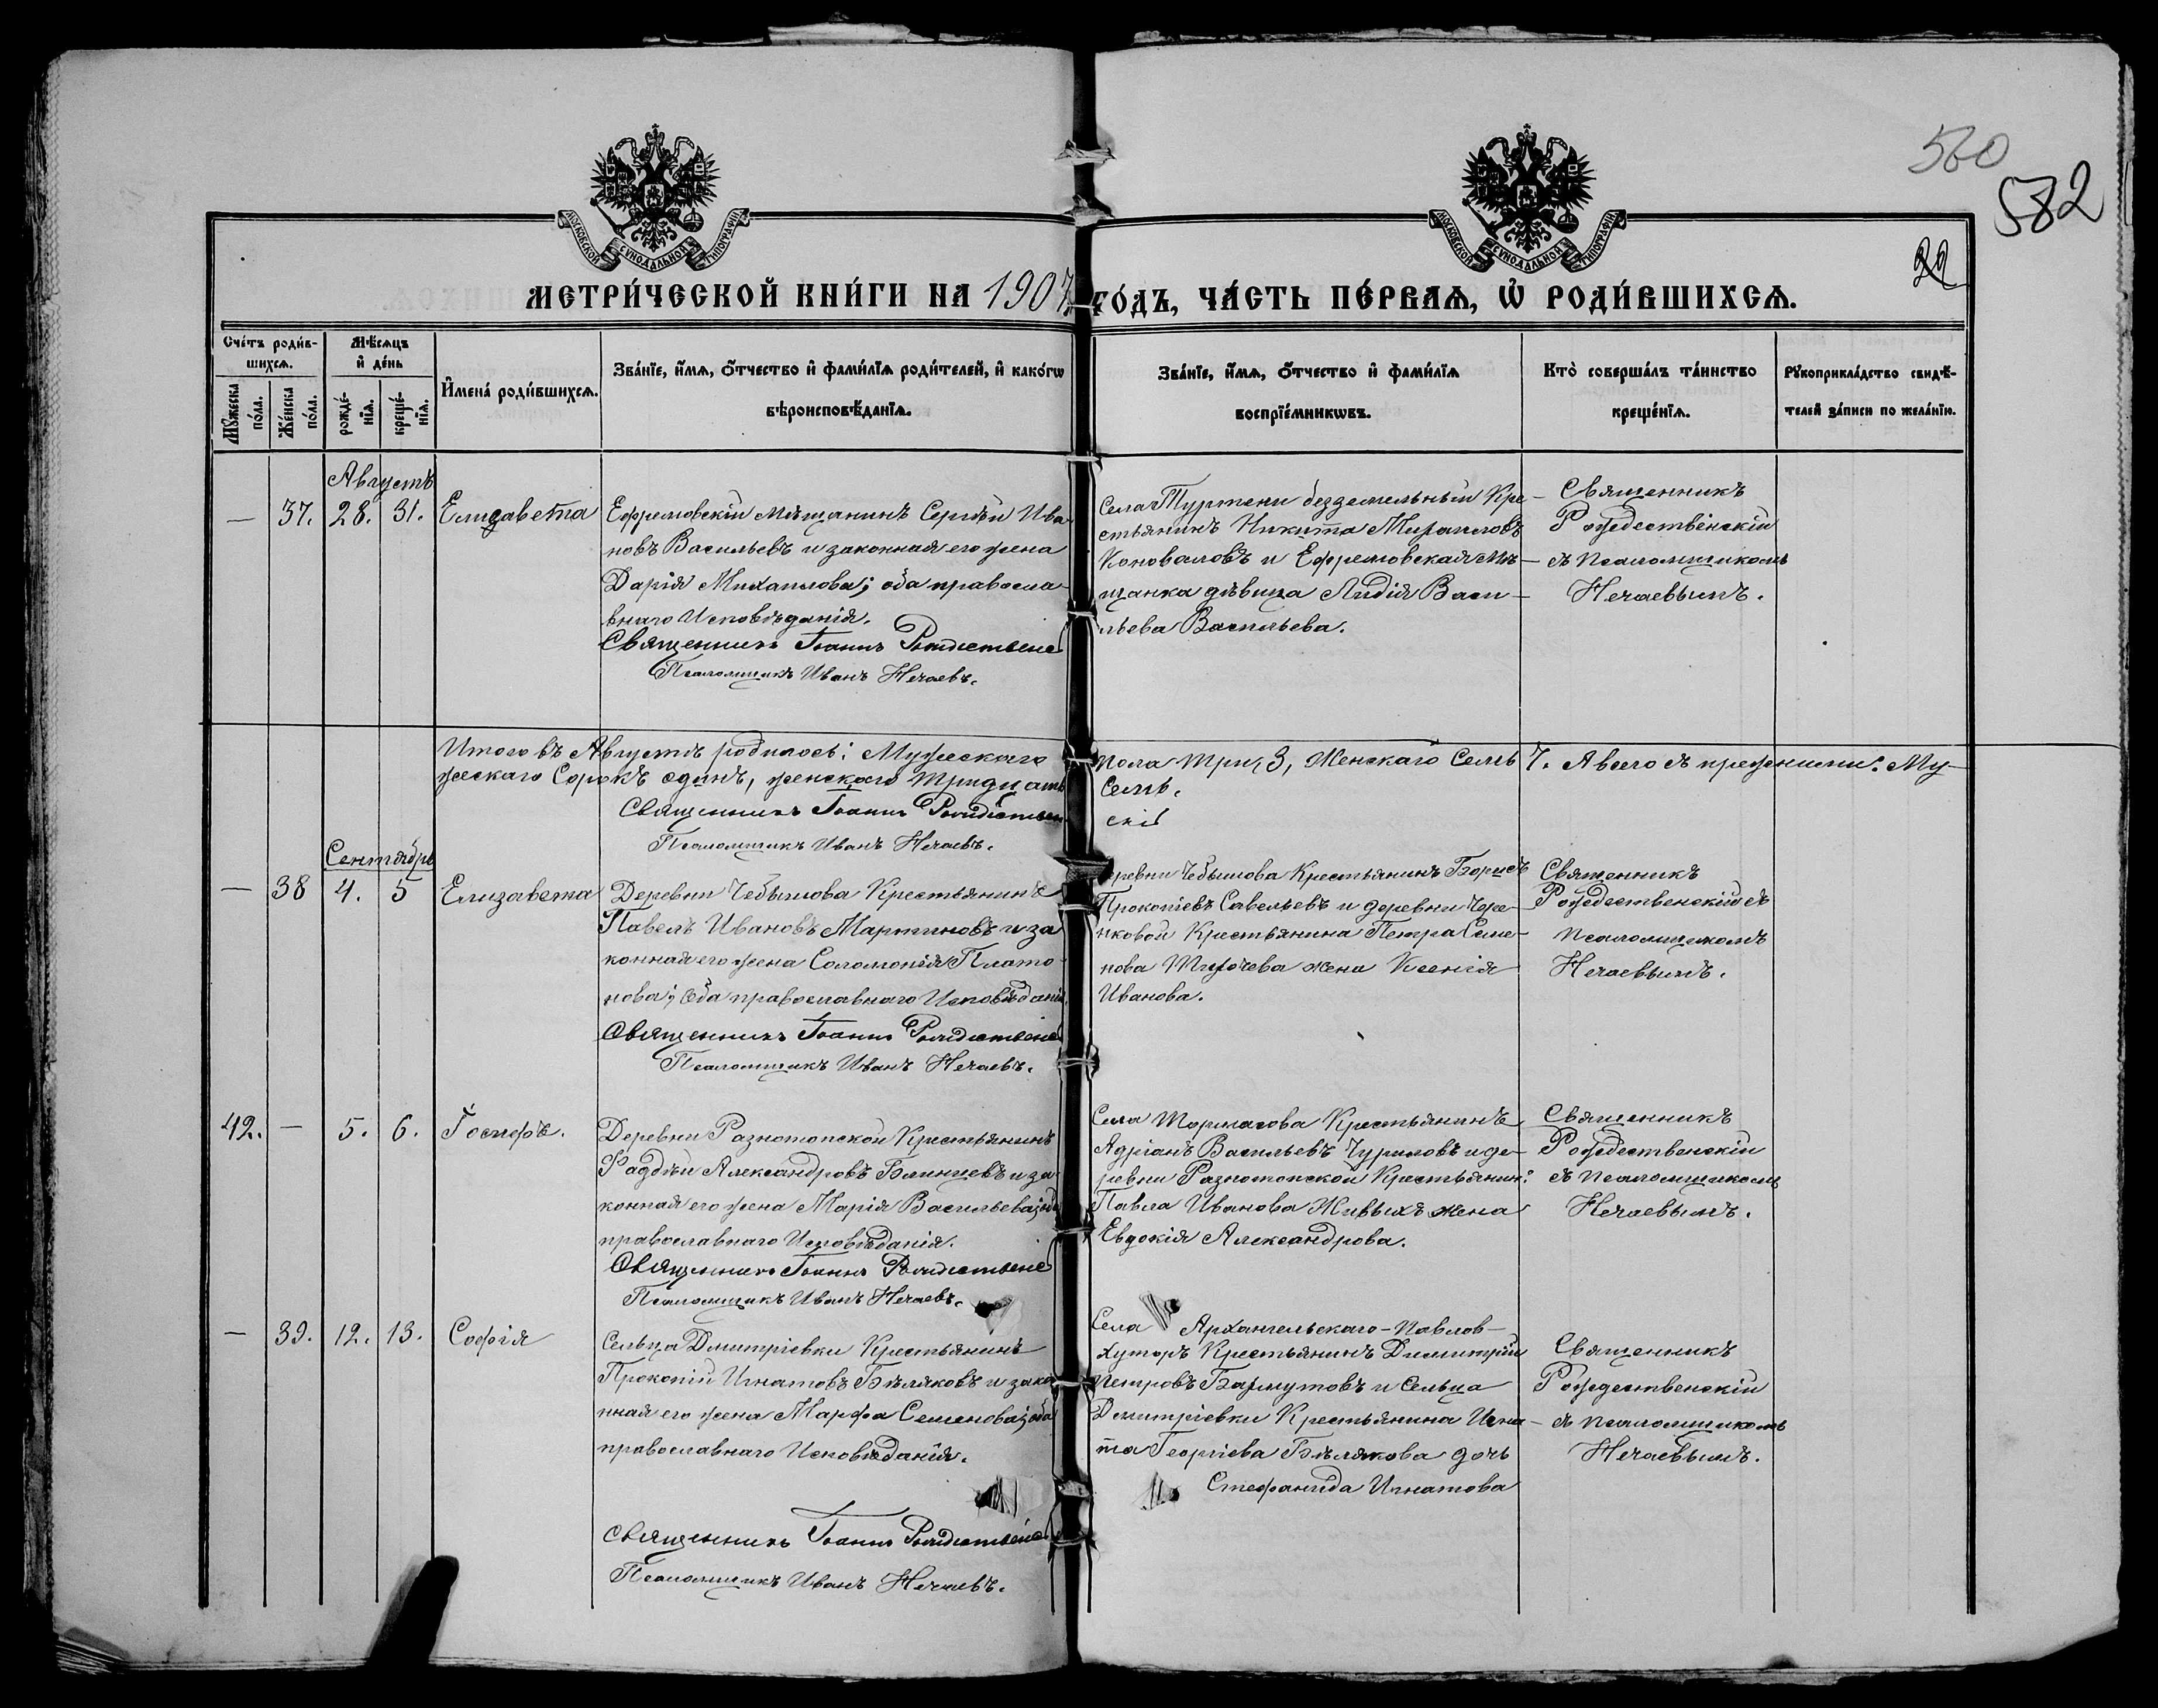 560
582
22
МОСКОВСКОЙ СѴНОДАЛЬНОЙ ТИПОГРАФІИ
МОСКОВСКОЙ СѴНОДАЛЬНОЙ ТИПОГРАФІИ
МЕТРИ́ЧЕСКОЙ КНИ́ГИ НА 1907
ГО́ДЪ, ЧА́СТЬ ПЕ́РВАѦ, Ѡ҆ РОДИ́ВШИХСѦ.
Сче́тъ роди́в-
шихсѧ.
Мꙋ́жеска по́ла.
Же́нска по́ла.
Мѣ́сѧцъ
и҆ де́нь
рожде́-
нїѧ.
креще́-
нїѧ.
И҆мена̀ роди́вшихсѧ.
Зва́нїе, и҆́мѧ, ѻ҆́тчество и҆ фами́лїѧ роди́телей, и҆ како́гѡ
вѣроисповѣ́данїѧ.
Зва́нїе, и҆́мѧ, ѻ҆́тчество и҆ фами́лїѧ
воспрїе́мникѡвъ.
Кто̀ соверша́лъ та́инство
креще́нїѧ.
Рꙋкоприкла́дство свидѣ́-
телей за́писи по жела́нїю.
Августъ
— 37. 28. 31. Елисавета
Ефремовскій Мѣщанинъ Сергѣй Ива-
новъ Васильевъ и законная его жена
Дарія Михаилова; оба правосла-
внаго Исповѣданія.
Священникъ Іоаннъ Рождественс
Псаломщикъ Иванъ Нечаевъ.
Села Туртени безземельный Кре-
стьянинъ Никита Михаиловъ
Коноваловъ и Ефремовская Мѣ-
щанка дѣвица Лидія Васи-
льева Васильева.
Священникъ
Рождественскій
съ Псаломщикомъ
Нечаевымъ.
Итого въ Августѣ родилось: Мужескаго
пола три, 3, Женскаго Семь 7. А всего съ прежними: Му-
жескаго Сорокъ одинъ, женскаго Тридцать
Семь.
Священникъ Іоаннъ Рождествен
скій
Псаломщикъ Иванъ Нечаевъ.
Сентябрь
— 38 4. 5 Елизавета
Деревни Чебышова Крестьянинъ
Павелъ Ивановъ Мартиновъ и за
конная его жена Соломонія Плато-
нова; оба православнаго Исповѣданія.
Священникъ Іоаннъ Рождественс
Псаломщикъ Иванъ Нечаевъ.
деревни Чебышова Крестьянинъ Борисъ
Прокопіевъ Савельевъ и деревни
нковой Крестьянина Петра Семе-
нова жена Ксенія
Иванова.
Священникъ
Рождественскій съ
Псаломщикомъ
Нечаевымъ.
42. — 5. 6. Іосифъ.
Деревни Разнотопской Крестьянинъ
Фаддѣй Александровъ Блинцевъ и за-
конная его жена Марія Васильева; оба
православнаго Исповѣданія.
Священникъ Іоаннъ Рождественс
Псаломщикъ Иванъ Нечаевъ.
Села Тормасова Крестьянинъ
Адріанъ Васильевъ Чуриловъ и де-
ревни Разнотопской Крестьянин:
Павла Иванова Живыхъ жена
Евдокія Александрова.
Священникъ
Рождественскій
съ Псаломщикомъ
Нечаевымъ.
— 39. 12. 13. Софія
Сельца Дмитріевки Крестьянинъ
Прокопій Игнатовъ Бѣляковъ и зако
нная его жена Марфа Семенова; оба
православнаго Исповѣданія.
Священникъ Іоаннъ Рождественс
Псаломщикъ Иванъ Нечаевъ.
Села Архангельскаго-Павлов-
хуторъ Крестьянинъ Димитрій
Петровъ Бахмутовъ и Сельца
Дмитріевки Крестьянина Игна-
та Георгіева Бѣлякова дочь
Стефанида Игнатова
Священникъ
Рождественскій
съ Псаломщикомъ
Нечаевымъ.